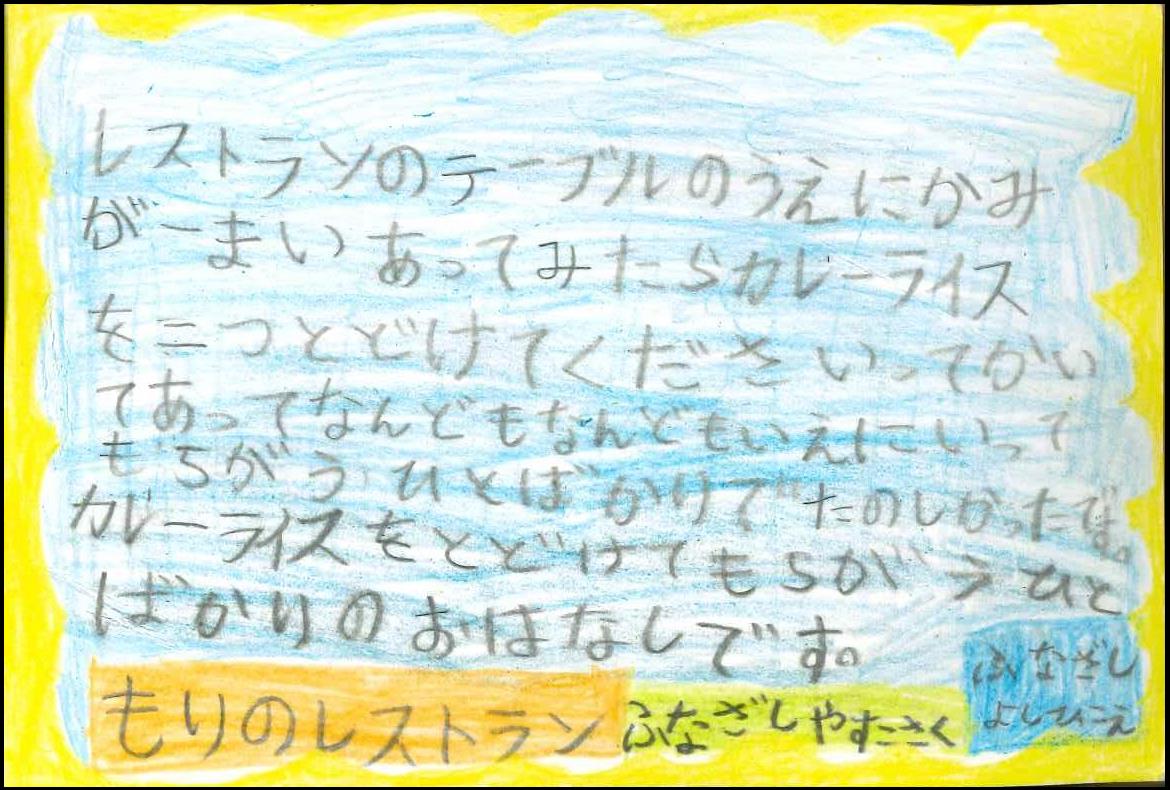 レストランのテーブルのうえにかみ
が一まいあってみたらカレーライス
を二つとどけてくださいってかい
てあってなんどもなんどもいえにいって
もちがうひとばかりでたのしかったです。
カレーライスをとどけてもちがうひと
ばかりのおはなしです。
もりのレストラン
ふなざしやすこさく
ふなざし
よしひこえ